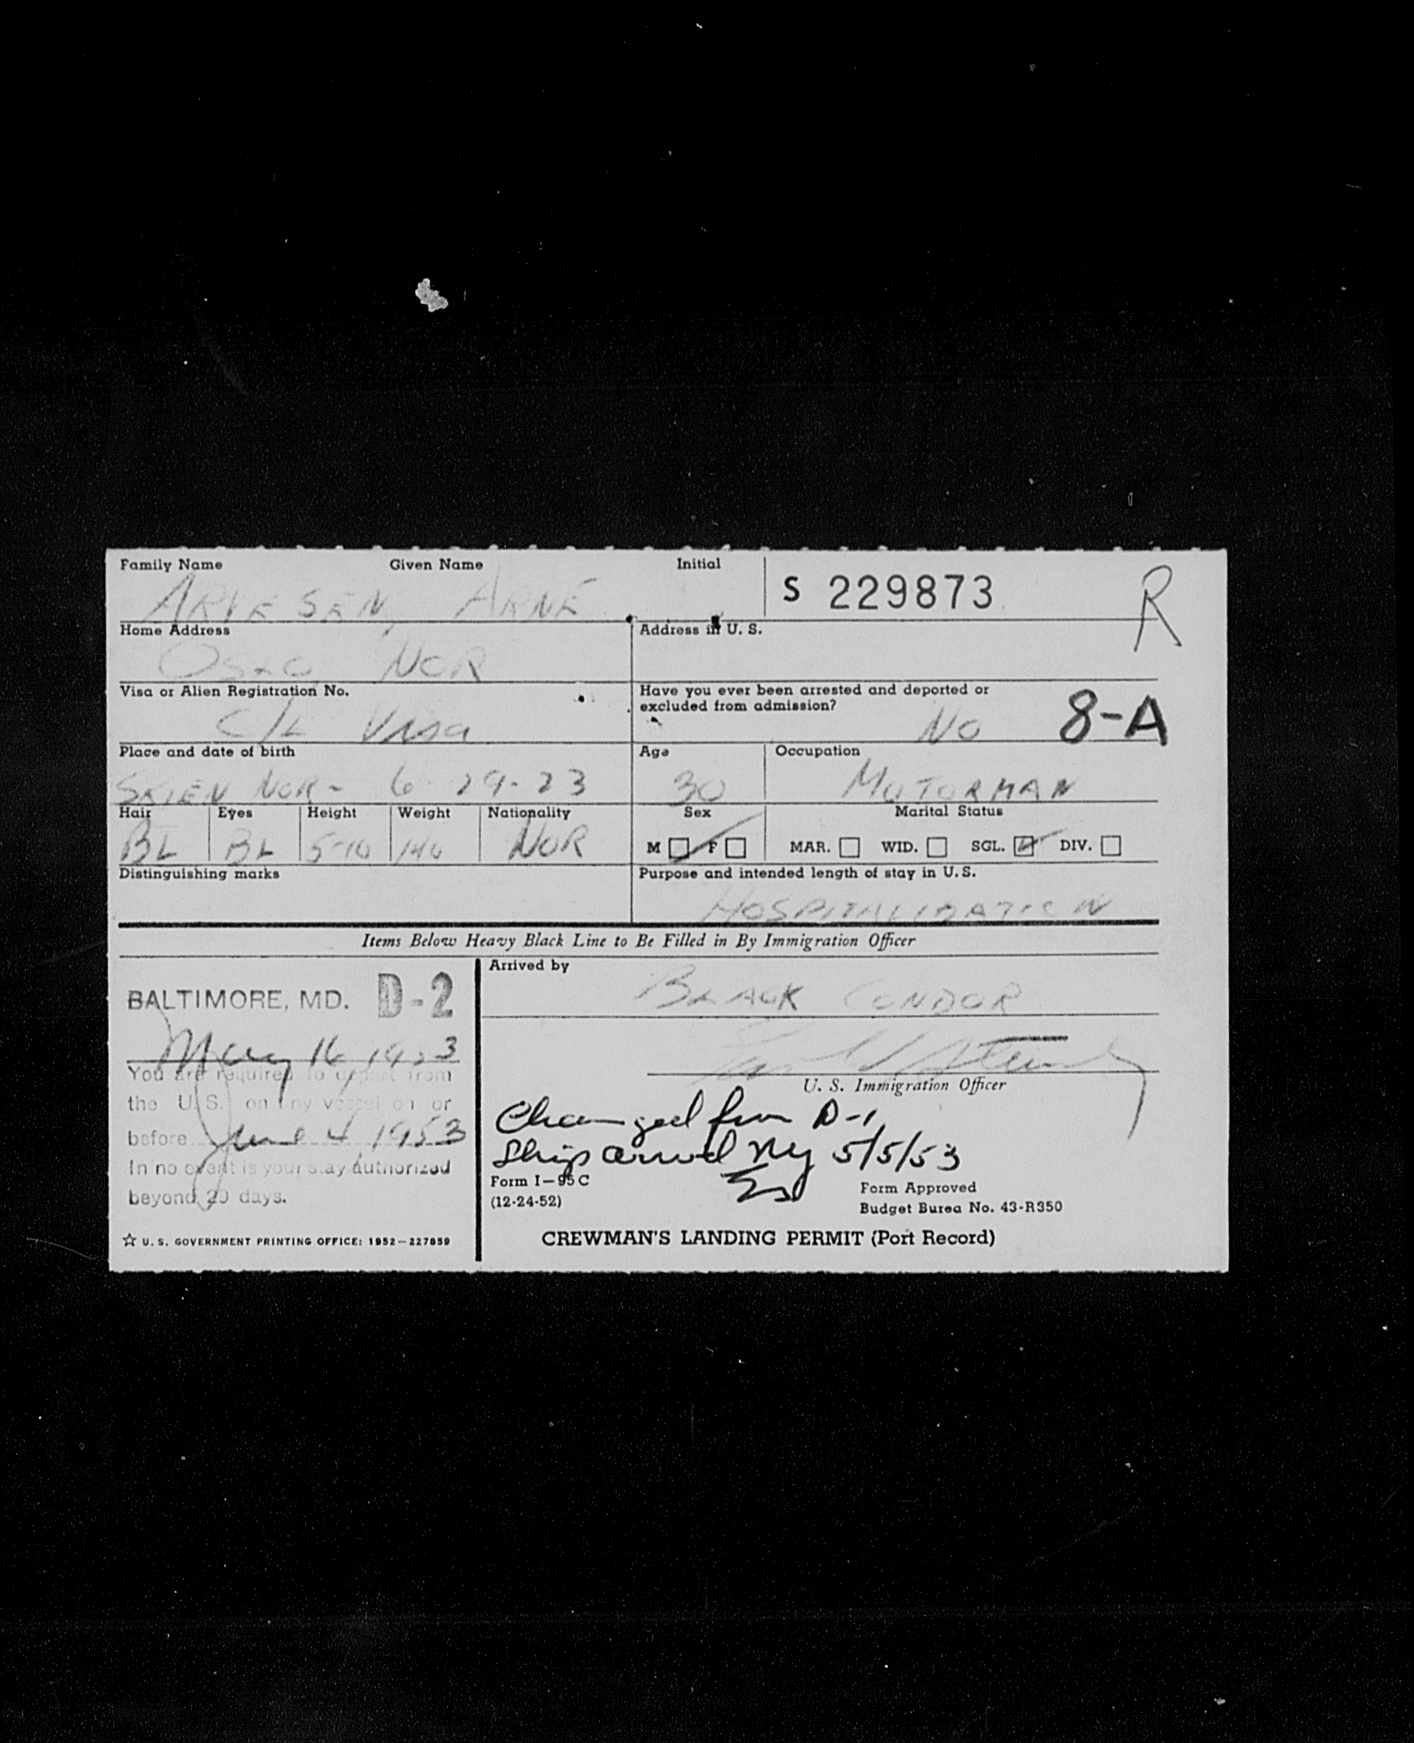 Family Name Given Name Initial
ARVESEN, ARNE S 229873 R
Home Address Address in U. S.
OSLO NOR
Visa or Alien Registration No. Have you ever been arrested and deported or excluded from admission?
C/L Visa No 8-A
Place and date of birth Age Occupation
SKIEN NOR- 6-29-23 30 MOTORMAN
Hair Eyes Height Weight Nationality Sex Marital Status
BL BL 5-10 140 NOR M F MAR. WID. SGL. DIV.
Distinguishing marks Purpose and intended length of stay in U.S.
HOSPITALIZATION
Items Below Heavy Black Line to Be Filled in By Immigration Officer
BALTIMORE, MD. D-2
May 16, 1953
You are required to depart from
the U.S. on any vessel on or
before June 4, 1953
In no event is your stay authorized
beyond 20 days.
☆ U. S. GOVERNMENT PRINTING OFFICE: 1952—227859
Arrived by
BLACK CONDOR
U. S. Immigration Officer
Changed from D-1,
Ship arrived NY 5/5/53
Form I-95C
(12-24-52)
Form Approved
Budget Burea No. 43-R350
CREWMAN'S LANDING PERMIT (Port Record)